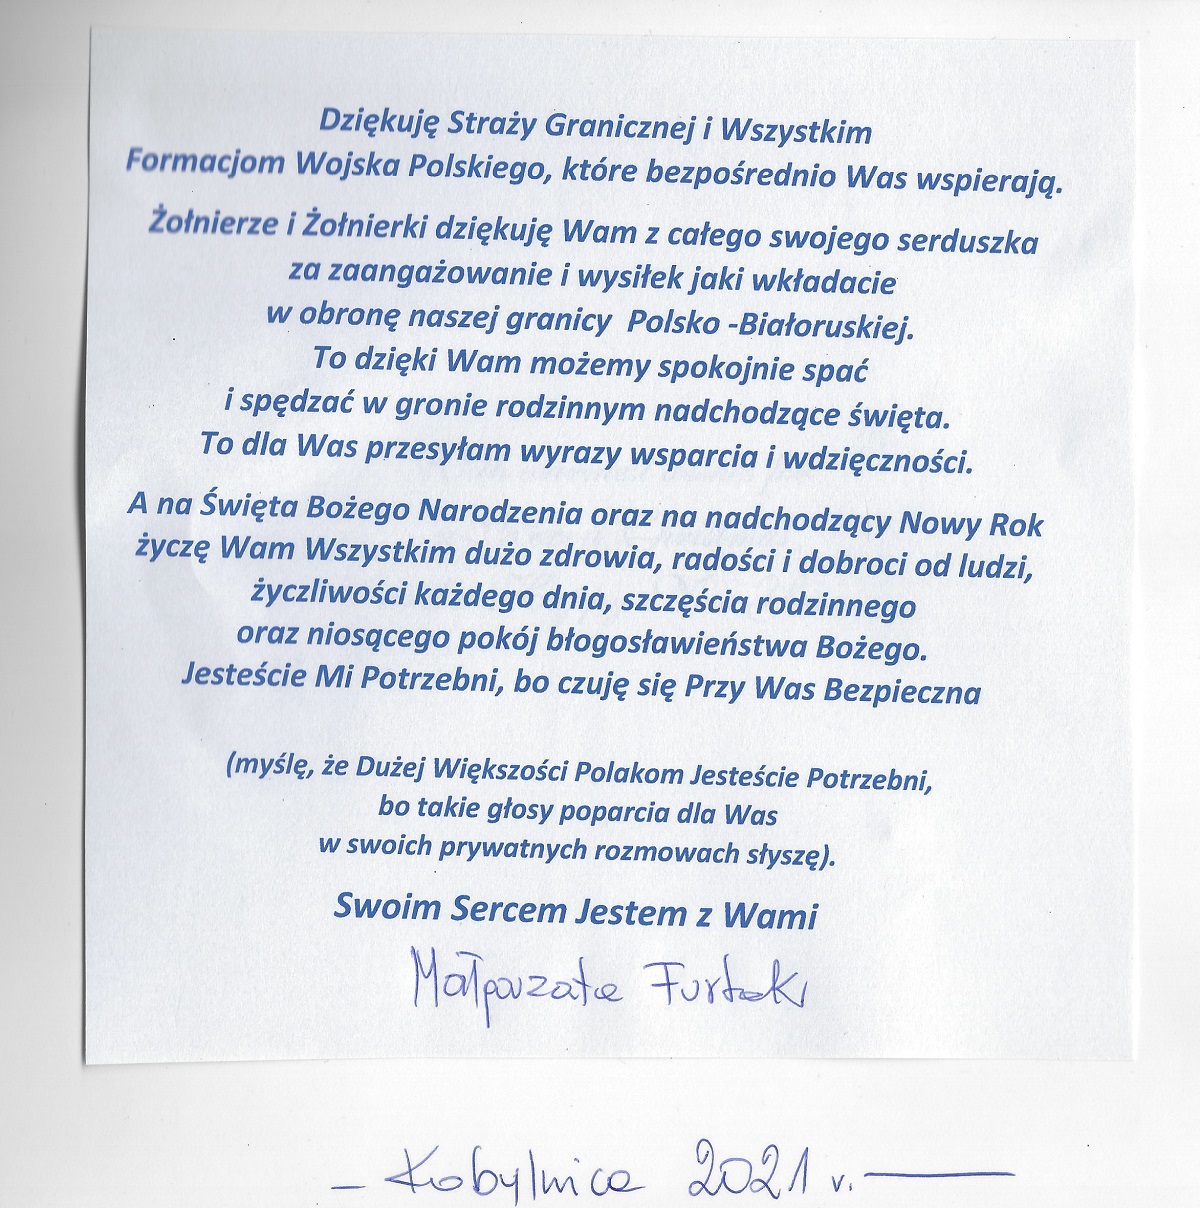 Dziękuję Straży Granicznej i Wszystkim
Formacjom Wojska Polskiego, które bezpośrednio Was wspierają.
Żołnierze i Żołnierki dziękuję Wam z całego swojego serduszka
za zaangażowanie i wysiłek jaki wkładacie
w obronę naszej granicy Polsko -Białoruskiej.
To dzięki Wam możemy spokojnie spać
i spędzać w gronie rodzinnym nadchodzące święta.
To dla Was przesyłam wyrazy wsparcia i wdzięczności.
A na Święta Bożego Narodzenia oraz na nadchodzący Nowy Rok
życzę Wam Wszystkim dużo zdrowia, radości i dobroci od ludzi,
życzliwości każdego dnia, szczęścia rodzinnego
oraz niosącego pokój błogosławieństwa Bożego.
Jesteście Mi Potrzebni, bo czuję się Przy Was Bezpieczna
(myślę, że Dużej Większości Polakom Jesteście Potrzebni,
bo takie głosy poparcia dla Was
w swoich prywatnych rozmowach słyszę).
Swoim Sercem Jestem z Wami
Małgorzata Furtak
- Kobylnica 2021 r. -